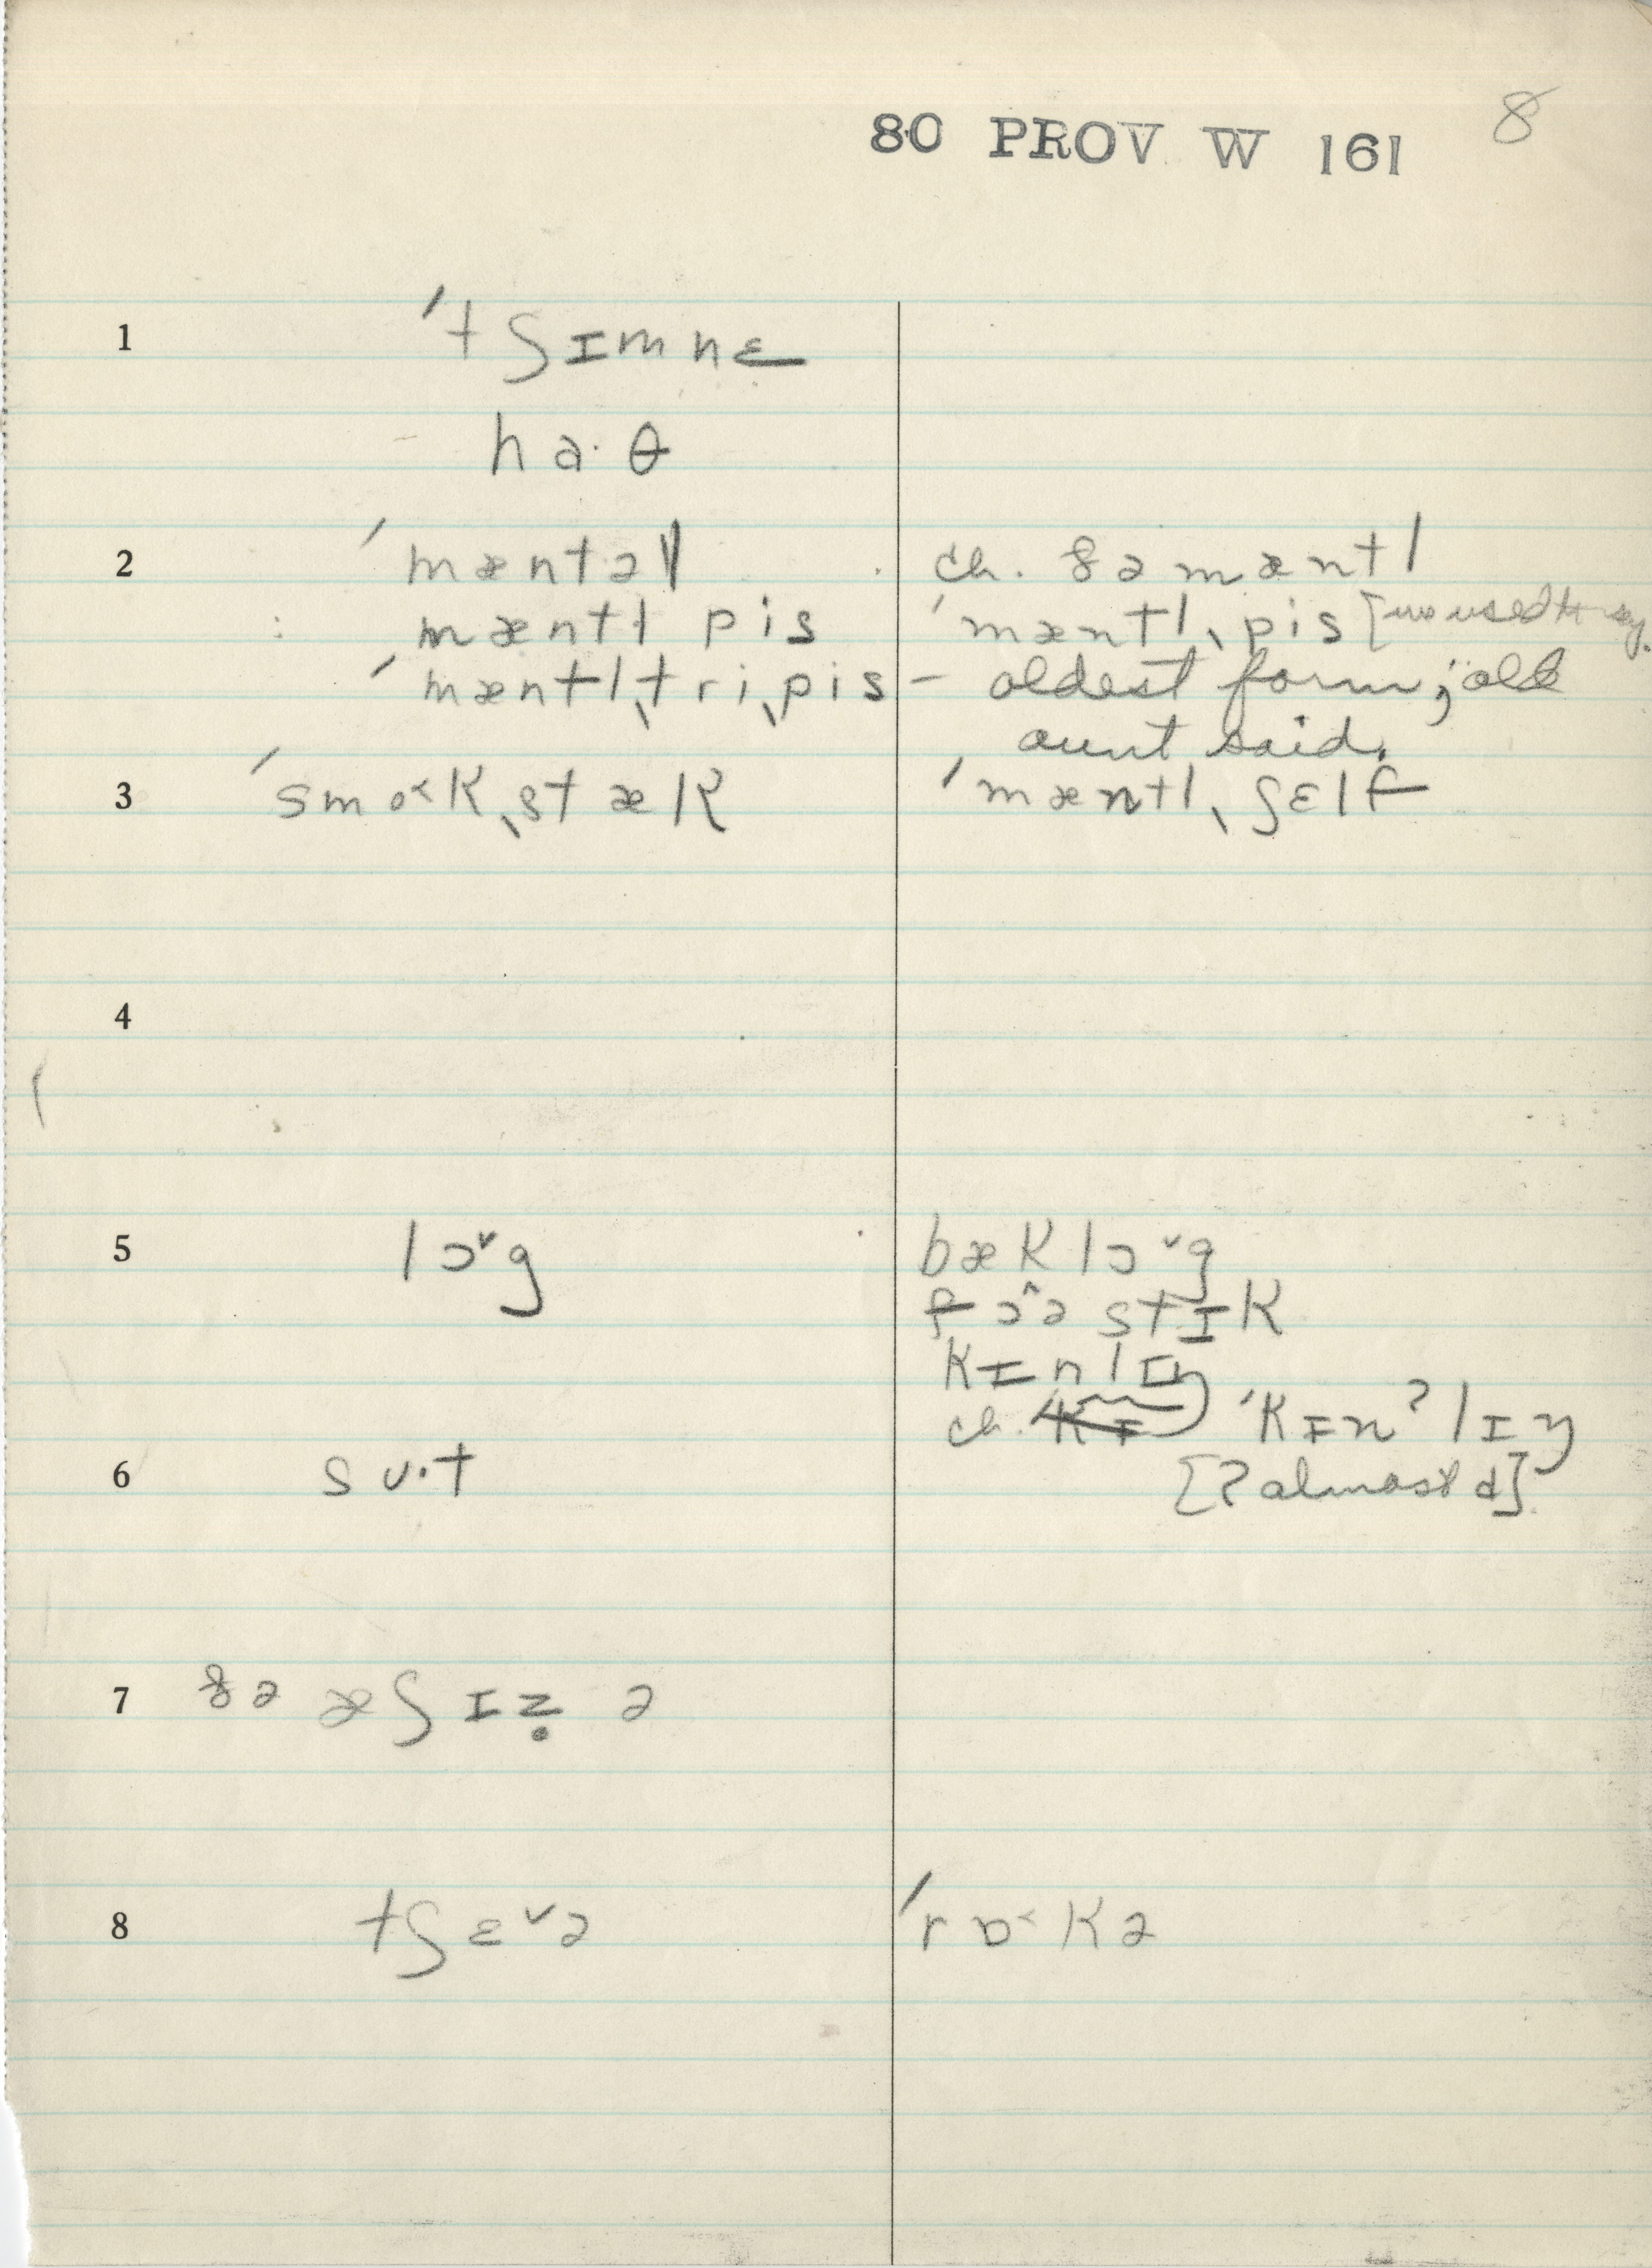 80 PROV W 161 8
1 ˈtʃɪmnɛ
ha·θ
2 ˈmæntəl ch. ðə mæntl
mæntl pis ˈmæntlˌpis [we used to say.
ˈmæntlˌtriˌpis – oldest form; old
aunt said.
3 ˈsmo˂kˌstæk ˈmæntlˌʃɛlf
4
5 lɔ˅g bæklɔ˅g
fɔ˄ə stɪk
kɪnlɪŋ
ch. kɪ ˈkɪnʔlɪŋ
6 sʊ·t [ʔ almost d]
7 ðə æʃɪẓ ə
8 tʃɛ˅ə ˈrɒ˂kə